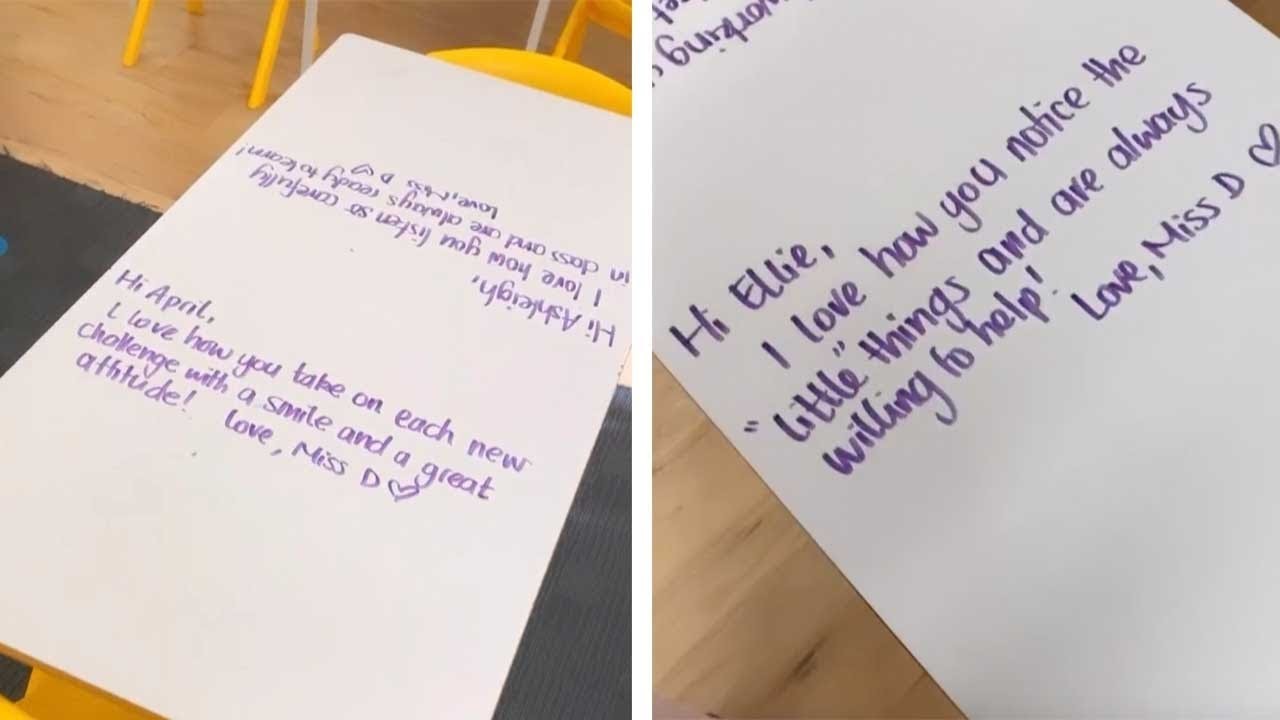 Hi April,
I love how you take on each new
challenge with a smile and a great
attitude!
love, Miss D ♡
Hi Ashleigh,
I love how you listen so carefully
in class and are always ready to learn!
love, Miss D ♡
working
Hi Ellie,
I love how you notice the
"little" things and are always
willing to help!
Love, Miss D ♡